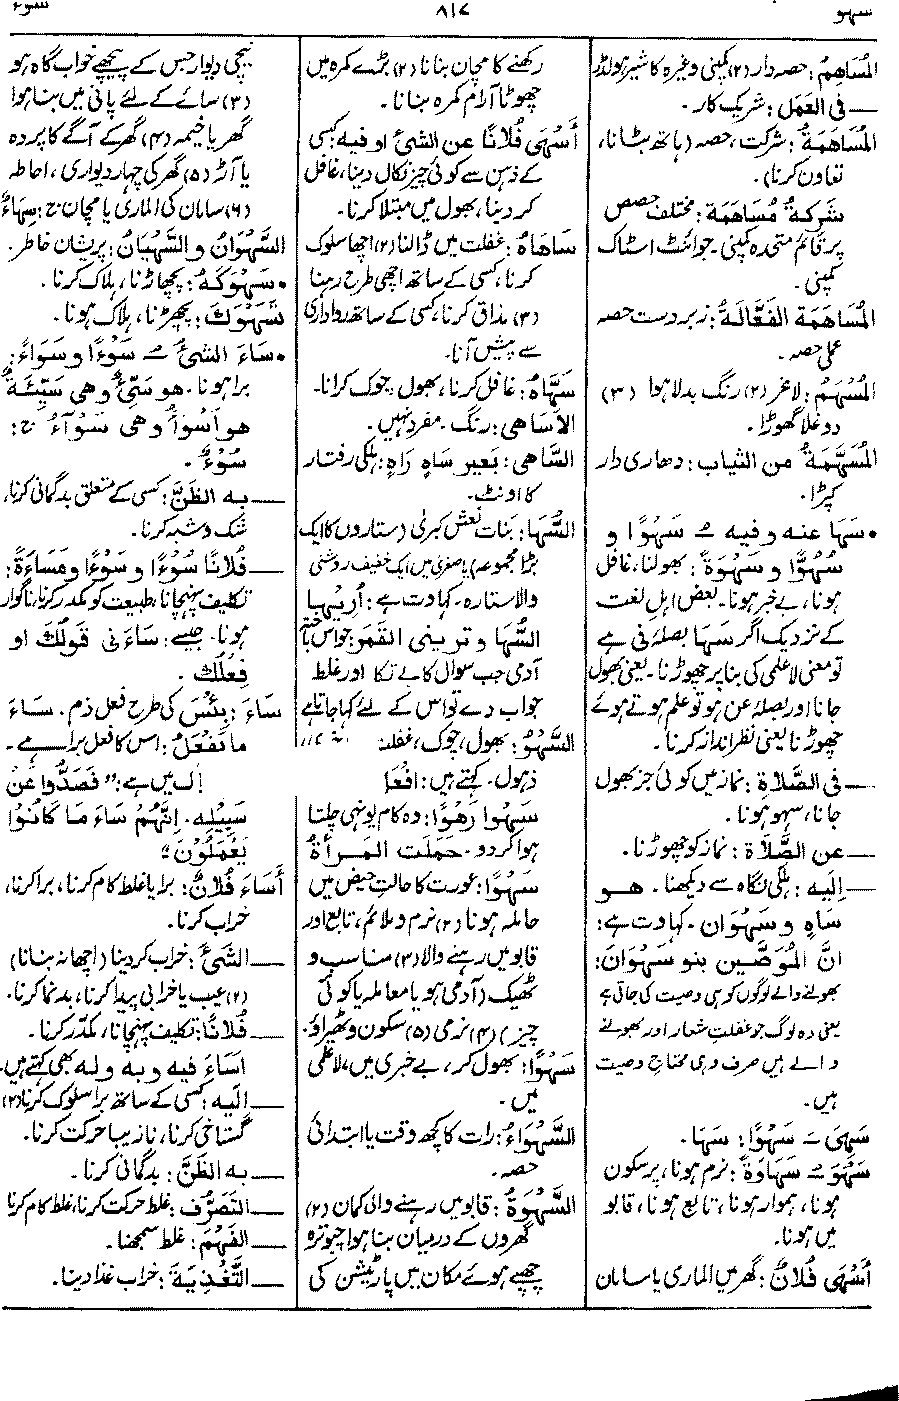 سہو
۸۱۷
سوء
المُسَاهِمُ: حصہ دار (۲) کمپنی وغیرہ کا شیر ہولڈر
— فی العَمَل: شریک کار۔
المُسَاهَمَةُ: شرکت، حصہ (ہاتھ بٹانا،
تعاون کرنا)۔
شَرِكَةُ مُسَاهَمَة: مختلف حصص
پر قائم متحدہ کمپنی۔ جوائنٹ اسٹاک
کمپنی۔
المُسَاهَمَة الفَعَّالَةُ: زبردست حصہ
عملی حصہ۔
المُسْهَمُ: لاغر (۲) رنگ بدلا ہوا (۳)
دوغلا گھوڑا۔
المُسَهَّمَةُ من الثياب: دھاری دار
کپڑا۔
• سَهَا عنه وفيه ـُ سَهْوًا و
سُهُوًّا و سَهْوَةً: بھولنا، غافل
ہونا، بے خبر ہونا۔ بعض اہل لغت
کے نزدیک اگر سَهَا بصلۂ فی ہے
تو معنی لاعلمی کی بنا پر چھوڑنا۔ یعنی بھول
جانا اور بصلۂ عن ہو تو علم ہوتے ہوئے
چھوڑنا یعنی نظر انداز کرنا۔
— فی الصَّلَاةِ: نماز میں کوئی چیز بھول
جانا، سہو ہونا۔
— عن الصَّلَاة: نماز کو چھوڑنا۔
— إليه: ہلکی نگاہ سے دیکھنا۔ هو
سَاهٍ و سَهْوَان۔ کہاوت ہے:
انَّ المُوَصَّيْنَ بنو سَهْوَانَ:
بھولنے والے لوگوں کو ہی وصیت کی جاتی ہے
یعنی وہ لوگ جو غفلت شعار اور بھولنے
والے ہیں صرف وہی محتاج وصیت
ہیں۔
سَهِيَ ـَ سَهْوًا: سَهَا۔
سَهُوَ ـُ سَهَاوَةً: نرم ہونا، پرسکون
ہونا، ہموار ہونا، تابع ہونا، قابو
میں ہونا۔
أَسْهَى فُلَانٌ: گھر میں الماری یا سامان
رکھنے کا مچان بنانا (۲) بڑے کمرہ میں
چھوٹا آرام کمرہ بنانا۔
أَسْهَى فُلَانًا عن الشيءِ او فيه: کسی
کے ذہن سے کوئی چیز نکال دینا، غافل
کر دینا، بھول میں مبتلا کرنا۔
سَاهَاهُ: غفلت میں ڈالنا (۲) اچھا سلوک
کرنا، کسی کے ساتھ اچھی طرح رہنا
(۳) مذاق کرنا، کسی کے ساتھ رواداری
سے پیش آنا۔
سَهَّاهُ: غافل کرنا، بھول چوک کرانا۔
الأسَاهِي: رنگ۔ مفرد نہیں۔
السَّاهِي: بَعير سَاهٍ رَاهٍ: ہلکی رفتار
کا اونٹ۔
السُّهَا: بَنات نعش کبریٰ (ستاروں کا ایک
بڑا مجموعہ) یا صغریٰ میں ایک خفیف روشنی
والا ستارہ۔ کہاوت ہے: أُرِيْهَا
السُّهَا و تريني القمَر: جو اس باختہ
آدمی جب سوال کا بے تکا اور غلط
جواب دے تو اس کے لئے کہا جاتا ہے
السَّهْوُ: بھول، چوک، غفلت
ذہول۔ کہتے ہیں: افْعَل
سَهْوًا رَهْوًا: وہ کام یونہی چلتا
ہوا کر دو۔ حَمَلَت المَرأةُ
سَهْوًا: عورت کا حالتِ حیض میں
حاملہ ہونا (۲) نرم و ملائم، تابع اور
قابو میں رہنے والا (۳) مناسب و
ٹھیک (آدمی ہو یا معاملہ یا کوئی
چیز) (۴) نرمی (۵) سکون و ٹھیراؤ۔
سَهْوًا: بھول کر، بے خبری میں، لاعلمی
میں۔
السَّهْوَاءُ: رات کا کچھ وقت یا ابتدائی
حصہ۔
السَّهْوَةُ: قابو میں رہنے والی کمان (۲)
گھروں کے درمیان بنا ہوا چبوترہ
چھپے ہوئے مکان میں پارٹیشن کی
نیچی دیوار جس کے پیچھے خواب گاہ ہو
(۳) سائے کے لئے پانی میں بنا ہوا
گھر یا خیمہ (۴) گھر کے آگے کا پردہ
یا آڑ (۵) گھر کی چہار دیواری، احاطہ
(۶) سامان کی الماری یا مچان ج: سِهَاءٌ
السَّهْوَانُ و السَّهْيَانُ: پریشان خاطر۔
• سَهْوَكَهُ: پچھاڑنا، ہلاک کرنا۔
تَسَهْوَكَ: پچھڑنا، ہلاک ہونا۔
• سَاءَ الشيءُ ـُ سَوْءًا و سَوَاءً:
برا ہونا۔ هو سَيِّئٌ وهي سَيِّئَةٌ
هو أسْوَأُ وهي سَوْآءُ ج:
سُوْءٌ۔
— به الظنَّ: کسی کے متعلق بدگمانی کرنا،
شک و شبہ کرنا۔
— فُلَانًا سُوْءًا و سَوْءًا ومَسَاءَةً:
تکلیف پہنچانا، طبیعت کو مکدر کرنا، ناگوار
ہونا۔ جیسے: سَاءَنی قَولُكَ او
فِعلُكَ۔
سَاءَ: بِئْسَ کی طرح فعل ذم۔ سَاءَ
مَا تَفْعَلُ: اس کا فعل برا ہے۔
میں ہے: "فَصَدُّوا عَنْ
سَبِيْلِهِ۔ اِنَّهُمْ سَاءَ مَا كَانُوْا
يَعْمَلُوْنَ"
أَسَاءَ فُلَانٌ: برا یا غلط کام کرنا، برا کرنا،
خراب کرنا۔
— الشيءَ: خراب کر دینا (اچھا نہ بنانا)
(۲) عیب یا خرابی پیدا کرنا، بدنما کرنا۔
— فُلَانًا: تکلیف پہنچانا، مکدّر کرنا۔
اساءَ فيه و به وله بھی کہتے ہیں۔
— إليه: کسی کے ساتھ برا سلوک کرنا (۲)
گستاخی کرنا، نازیبا حرکت کرنا۔
— به الظنَّ: بدگمانی کرنا۔
— التصرُّفَ: غلط حرکت کرنا، غلط کام کرنا
— الفَهْمَ: غلط سمجھنا۔
— التَّغْذِيَةَ: خراب غذا دینا۔